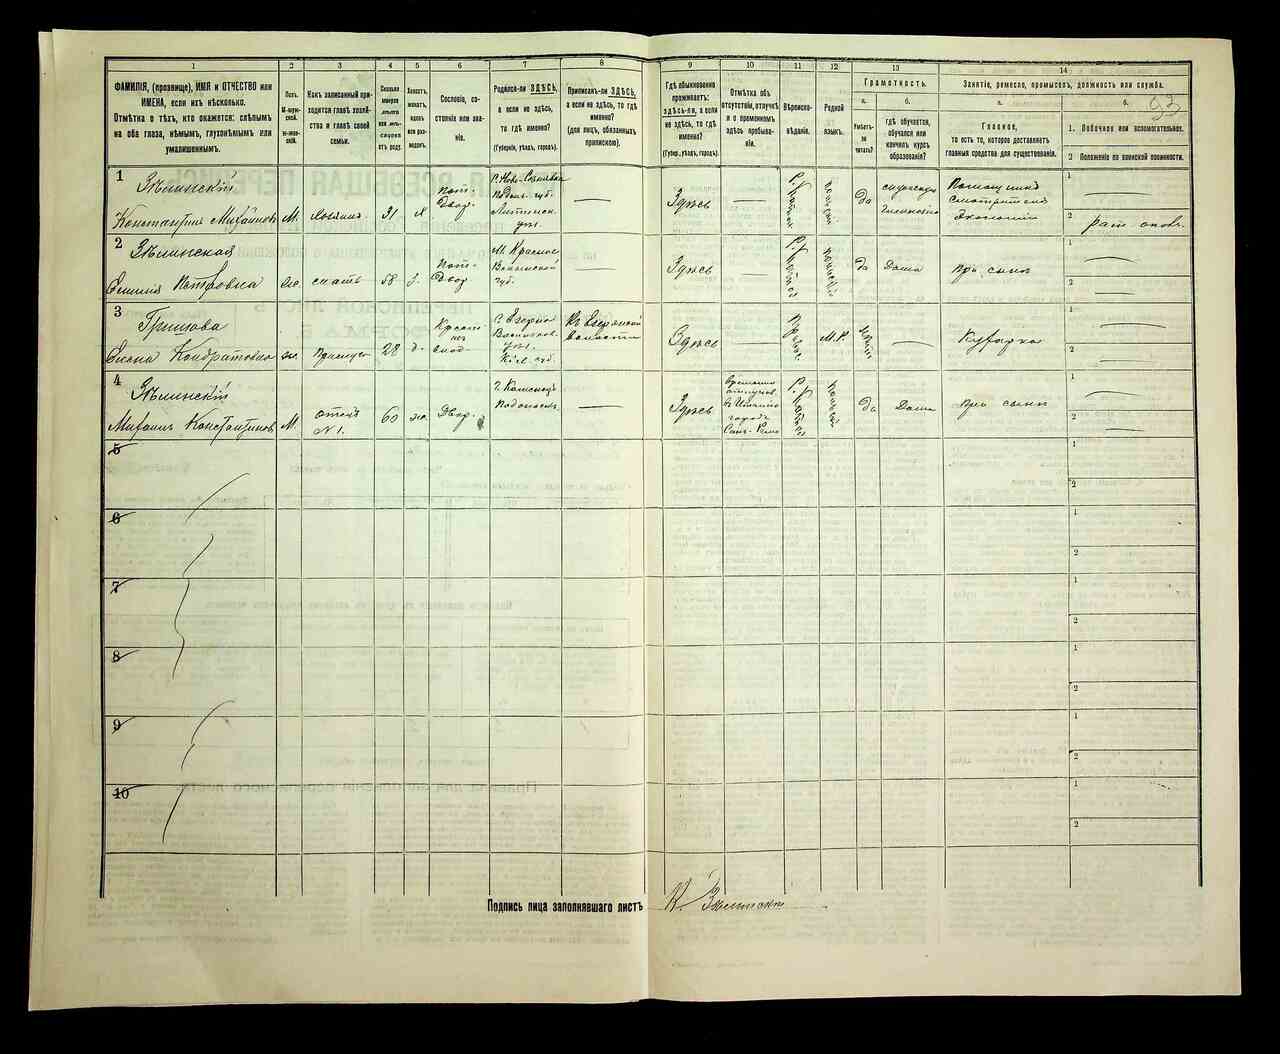 93
1
2
3
4
5
6
7
8
9
10
11
12
13
14
ФАМИЛІЯ, (прозвище), ИМЯ и ОТЧЕСТВО или
ИМЕНА, если ихъ нѣсколько.
Отмѣтка о тѣхъ, кто окажется: слѣпымъ
на оба глаза, нѣмымъ, глухонѣмымъ или
умалишеннымъ.
Полъ.
М-муж-
ской.
Ж-жен-
скій.
Какъ записанный при-
ходится главѣ хозяй-
ства и главѣ своей
семьи.
Сколько
минуло
лѣтъ
или мѣ-
сяцевъ
отъ роду.
Холостъ,
женатъ,
вдовъ
или раз-
веденъ.
Сословіе, со-
стояніе или зва-
ніе.
Родился-ли ЗДѢСЬ,
а если не здѣсь,
то гдѣ именно?
(Губернія, уѣздъ, городъ).
Приписанъ-ли ЗДѢСЬ,
а если не здѣсь, то гдѣ
именно?
(для лицъ, обязанныхъ
припискою).
Гдѣ обыкновенно
проживаетъ:
здѣсь-ли, а если
не здѣсь, то гдѣ
именно?
(Губер., уѣздъ, городъ).
Отмѣтка объ
отсутствіи, отлучкѣ
и о временномъ
здѣсь пребыва-
ніи.
Вѣроиспо-
вѣданіе.
Родной
языкъ.
Грамотность.
а.
б.
Умѣетъ-
ли
читать?
гдѣ обучается,
обучался или
кончилъ курсъ
образованія?
Занятіе, ремесло, промыселъ, должность или служба.
а.
б.
Главное,
то есть то, которое доставляетъ
главныя средства для существованія.
1. Побочное или вспомогательное.
2 Положеніе по воинской повинности.
1
Зѣлинскій
Константинъ Михайловъ
М.
Хозяинъ
31
Х
Пот.
Двор.
Подол. губ.
Литинск.
уѣз.
Здѣсь
Р. Катол
да
Помощникъ
Смотрителя
Экономіи
1
2
рат. опол.
2
Зѣлинская
Емилія Петровна
ж.
мать
58
З.
Пот.
Двор
М. Красное
губ.
Здѣсь
Р. Катол
да
Дома
При сынѣ
1
2
3
Гришова
Елена Кондратовна
ж.
28
д.
Крест
С. Езерна
Васильков.
уѣз.
Кіев. губ.
Къ Езерянской
волости
Здѣсь
Правос
М.Р.
Нѣтъ
Кухарка
1
2
4
Зѣлинскій
Михаилъ Константиновъ
М.
отецъ
№1.
60
ж.
Двор.
г. Каменецъ
Подольск.
Здѣсь
Временно
городъ
Санъ-Ремо
Р. Катол
да
Дома
при сынѣ
1
2
5
1
2
6
1
2
7
1
2
8
1
2
9
1
2
10
1
2
Подпись лица заполнявшаго листъ
К. Зѣлинскій